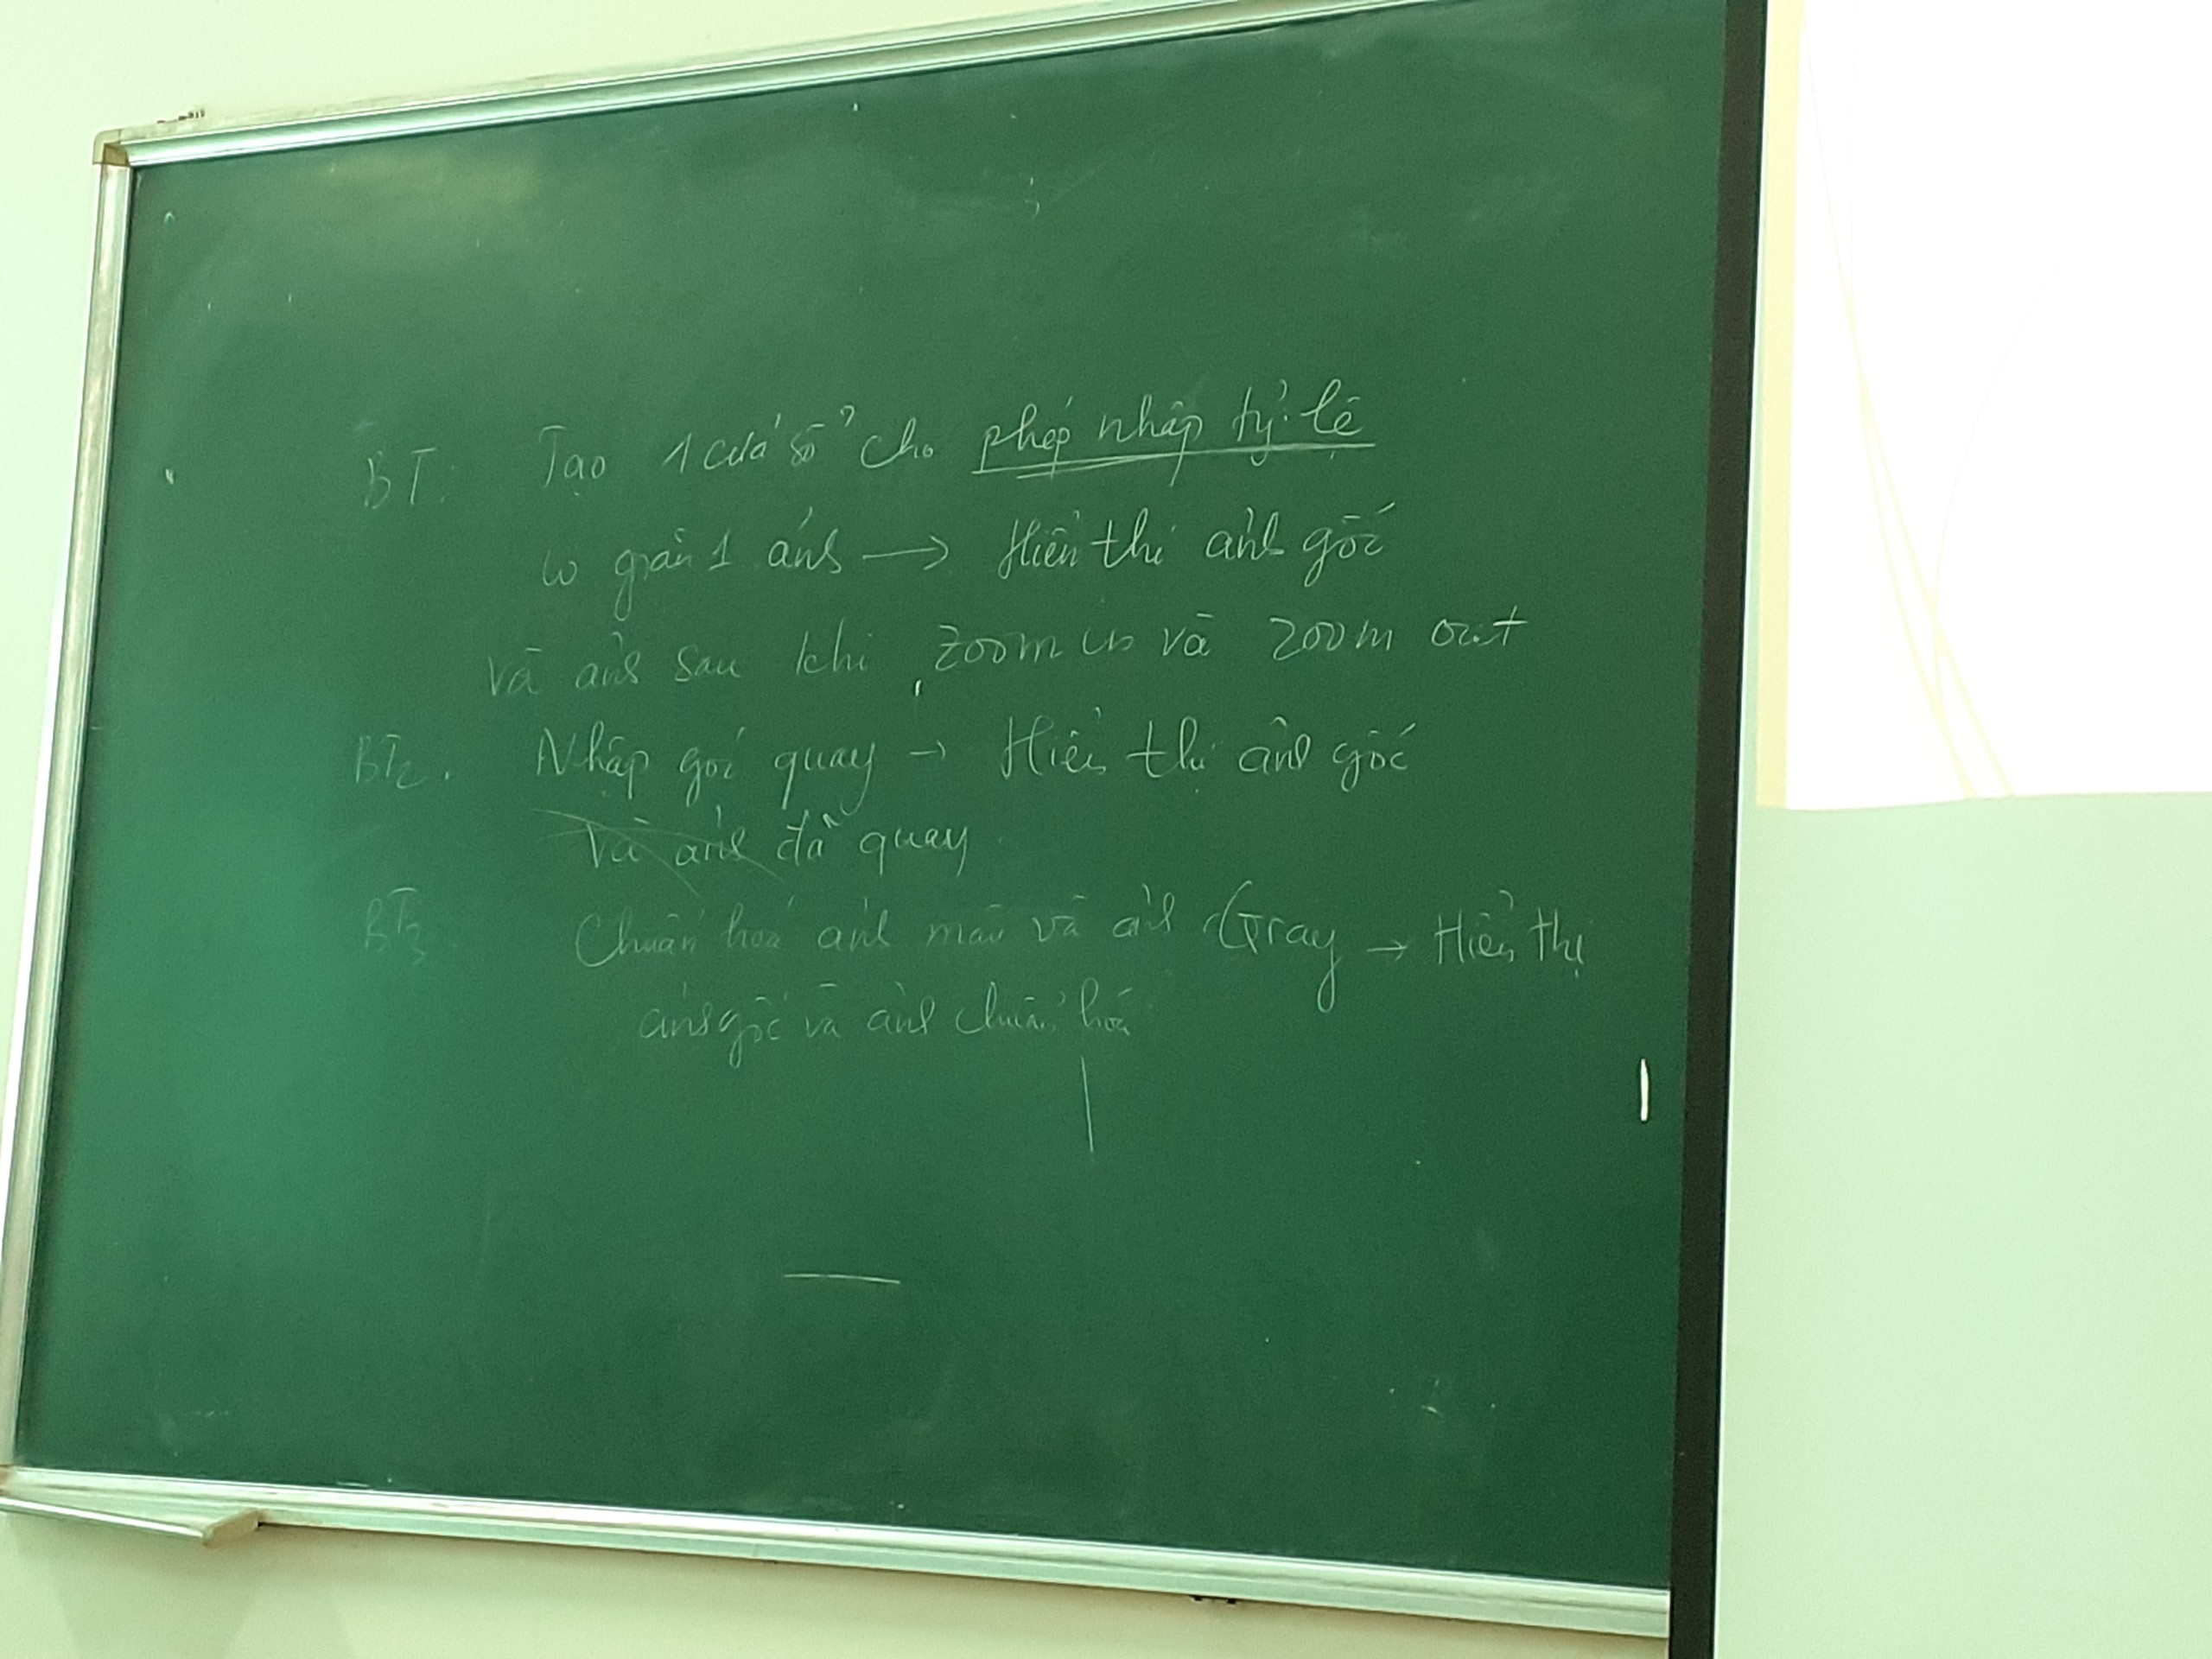 BT: Tạo 1 cửa sổ cho phép nhập tỷ lệ
co giãn 1 ảnh → Hiển thị ảnh gốc
và ảnh sau khi zoom in và zoom out
BT2. Nhập góc quay → Hiển thị ảnh gốc
và ảnh đã quay.
BT3 Chuẩn hoá ảnh màu và ảnh Gray → Hiển thị
ảnh gốc và ảnh chuẩn hoá